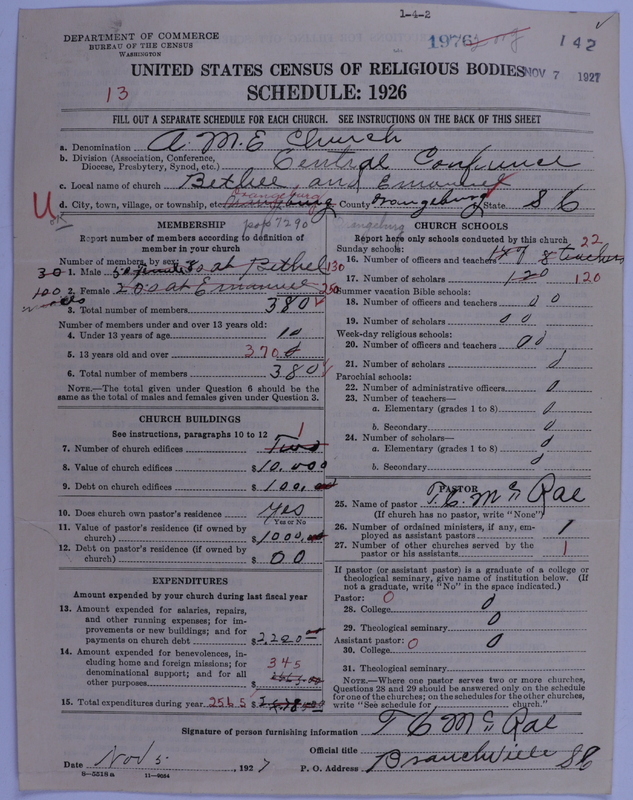 1-4-2
DEPARTMENT OF COMMERCE
BUREAU OF THE CENSUS
WASHINGTON
1976
142
UNITED STATES CENSUS OF RELIGIOUS BODIES
NOV 7 1927
13
SCHEDULE: 1926
FILL OUT A SEPARATE SCHEDULE FOR EACH CHURCH. SEE INSTRUCTIONS ON THE BACK OF THIS SHEET
a. Denomination A. M. E Church
b. Division (Association, Conference, Diocese, Presbytery, Synod, etc.) Central Confrence
c. Local name of church Bethel and Emanuel
d. City, town, village, or township, etc. Orangeburg County Orangeburg State S C
pop 7290
MEMBERSHIP
Report number of members according to definition of
member in your church
Number of members by sex:
30 1. Male at Bethel 130
100 2. Female 20s at Emanuel 250
3. Total number of members 380
Number of members under and over 13 years old:
4. Under 13 years of age 10
5. 13 years old and over 370
6. Total number of members 380
NOTE.—The total given under Question 6 should be the
same as the total of males and females given under Question 3.
CHURCH BUILDINGS
See instructions, paragraphs 10 to 12
1
7. Number of church edifices Two
8. Value of church edifices $10,000
9. Debt on church edifices $100.00
10. Does church own pastor's residence Yes
Yes or No
11. Value of pastor's residence (if owned by
church) $1000.00
12. Debt on pastor's residence (if owned by
church) $00
EXPENDITURES
Amount expended by your church during last fiscal year
13. Amount expended for salaries, repairs,
and other running expenses; for im-
provements or new buildings; and for
payments on church debt $2,220
14. Amount expended for benevolences, in-
cluding home and foreign missions; for
denominational support; and for all
other purposes 345
15. Total expenditures during year 2565 $
CHURCH SCHOOLS
Report here only schools conducted by this church
Sunday schools: 22
16. Number of officers and teachers 8 teachers
17. Number of scholars 120 120
Summer vacation Bible schools:
18. Number of officers and teachers 0 0
19. Number of scholars 0 0
Week-day religious schools:
20. Number of officers and teachers 0 0
21. Number of scholars
Parochial schools:
22. Number of administrative officers 0
23. Number of teachers—
a. Elementary (grades 1 to 8) 0
b. Secondary 0
24. Number of scholars—
a. Elementary (grades 1 to 8) 0
b. Secondary 0
PASTOR
25. Name of pastor T. C. McRae
(If church has no pastor, write "None")
26. Number of ordained ministers, if any, em-
ployed as assistant pastors 1
27. Number of other churches served by the
pastor or his assistants 1
If pastor (or assistant pastor) is a graduate of a college or
theological seminary, give name of institution below. (If
not a graduate, write "No" in the space indicated.)
Pastor: 0
28. College 0
29. Theological seminary 0
Assistant pastor: 0
30. College 0
31. Theological seminary
NOTE.—Where one pastor serves two or more churches,
Questions 28 and 29 should be answered only on the schedule
for one of the churches; on the schedules for the other churches,
write "See schedule for church."
Signature of person furnishing information T C McRae
Official title
Date Nov 5, 1927
P. O. Address Branchville S C
8-5518a 11-9054